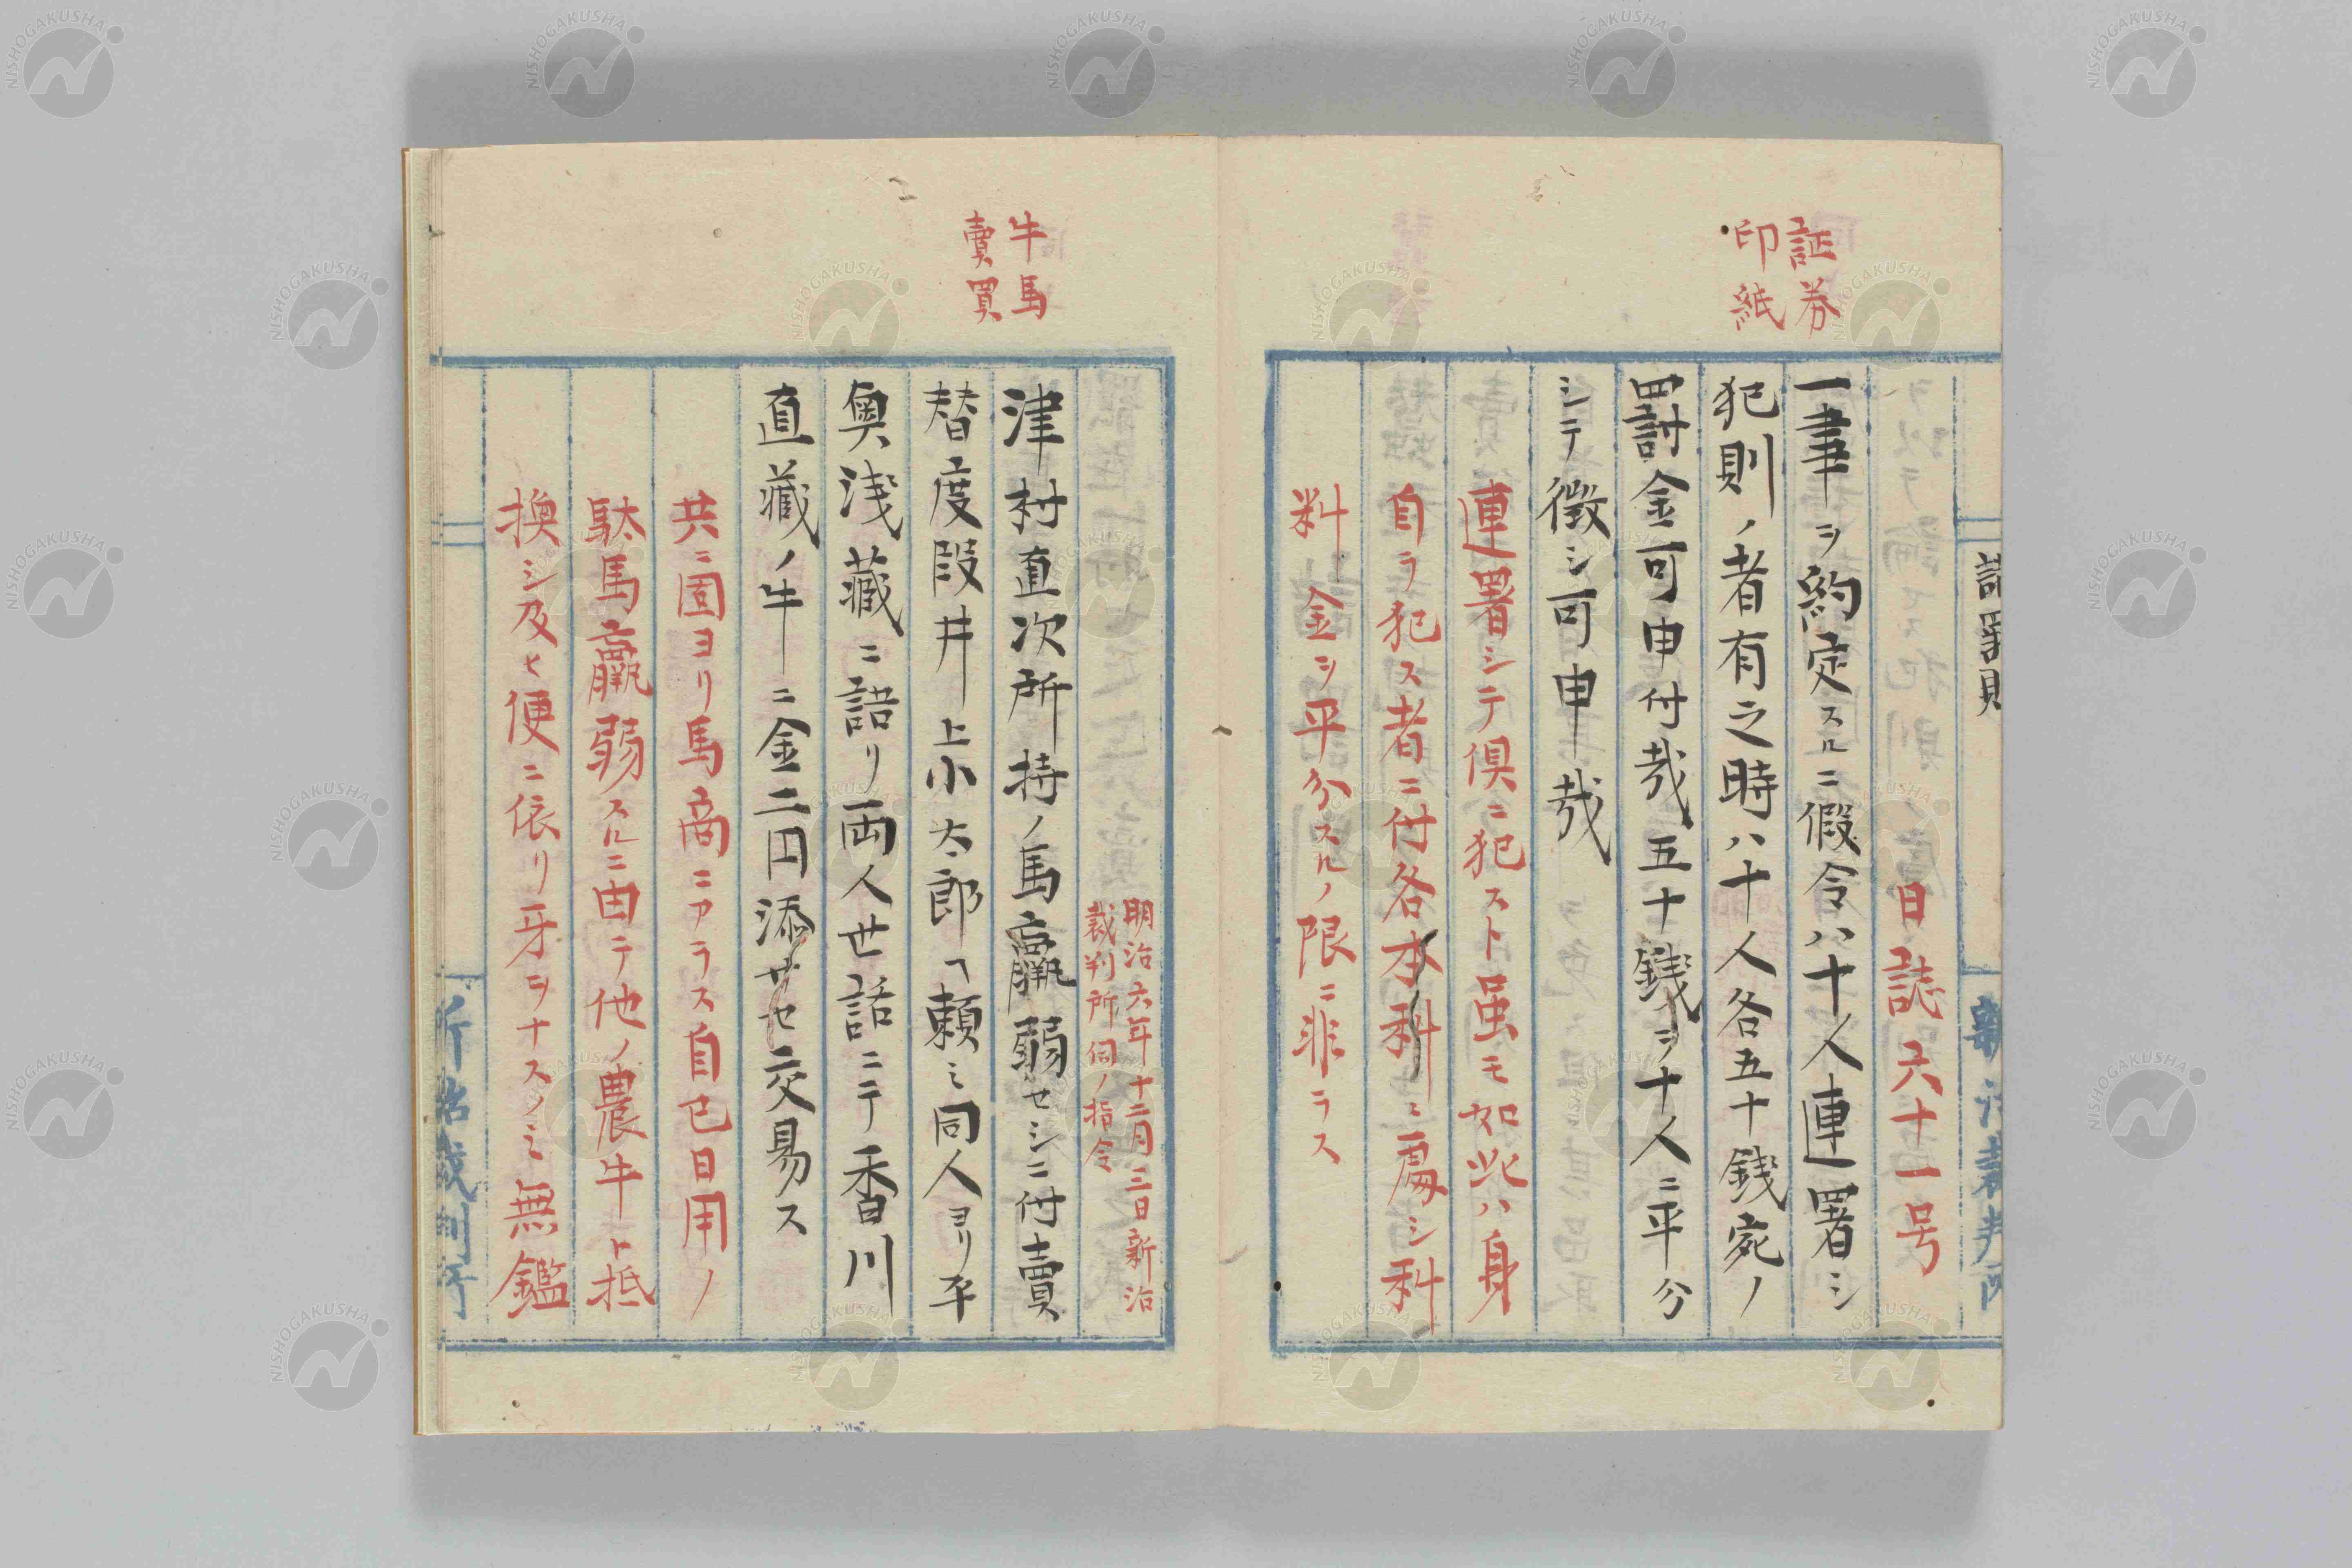 証券
印紙
諸罰則
日誌六十一号
一筆ヲ約定スルニ假令ハ十人連署シ
犯則ノ者有之時ハ十人各五十銭宛ノ
罰金可申付哉五十銭ヲ十人ニ平分
シテ徴シ可申哉
連署シテ倶ニ犯スト虽モ如此ハ身
自ラ犯ス者ニ付各本科ニ處シ科
料金ヲ平分スルノ限ニ非ラス
新治裁判所
牛馬
賣買
明治六年十二月三日新治
裁判所伺ノ指令
津村直次所持ノ馬羸弱セシニ付賣
替度段井上小太郎ヘ頼ミ同人ヨリ平
奥浅藏ニ語リ両人世話ニテ香川
直藏ノ牛ニ金二円添サセ交易ス
共ニ固ヨリ馬商ニアラス自己日用ノ
駄馬羸弱スルニ由テ他ノ農牛ト抵
換シ及ヒ便ニ依リ牙ヲナスノミ無鑑
新治裁判所
NISHOGAKUSHA